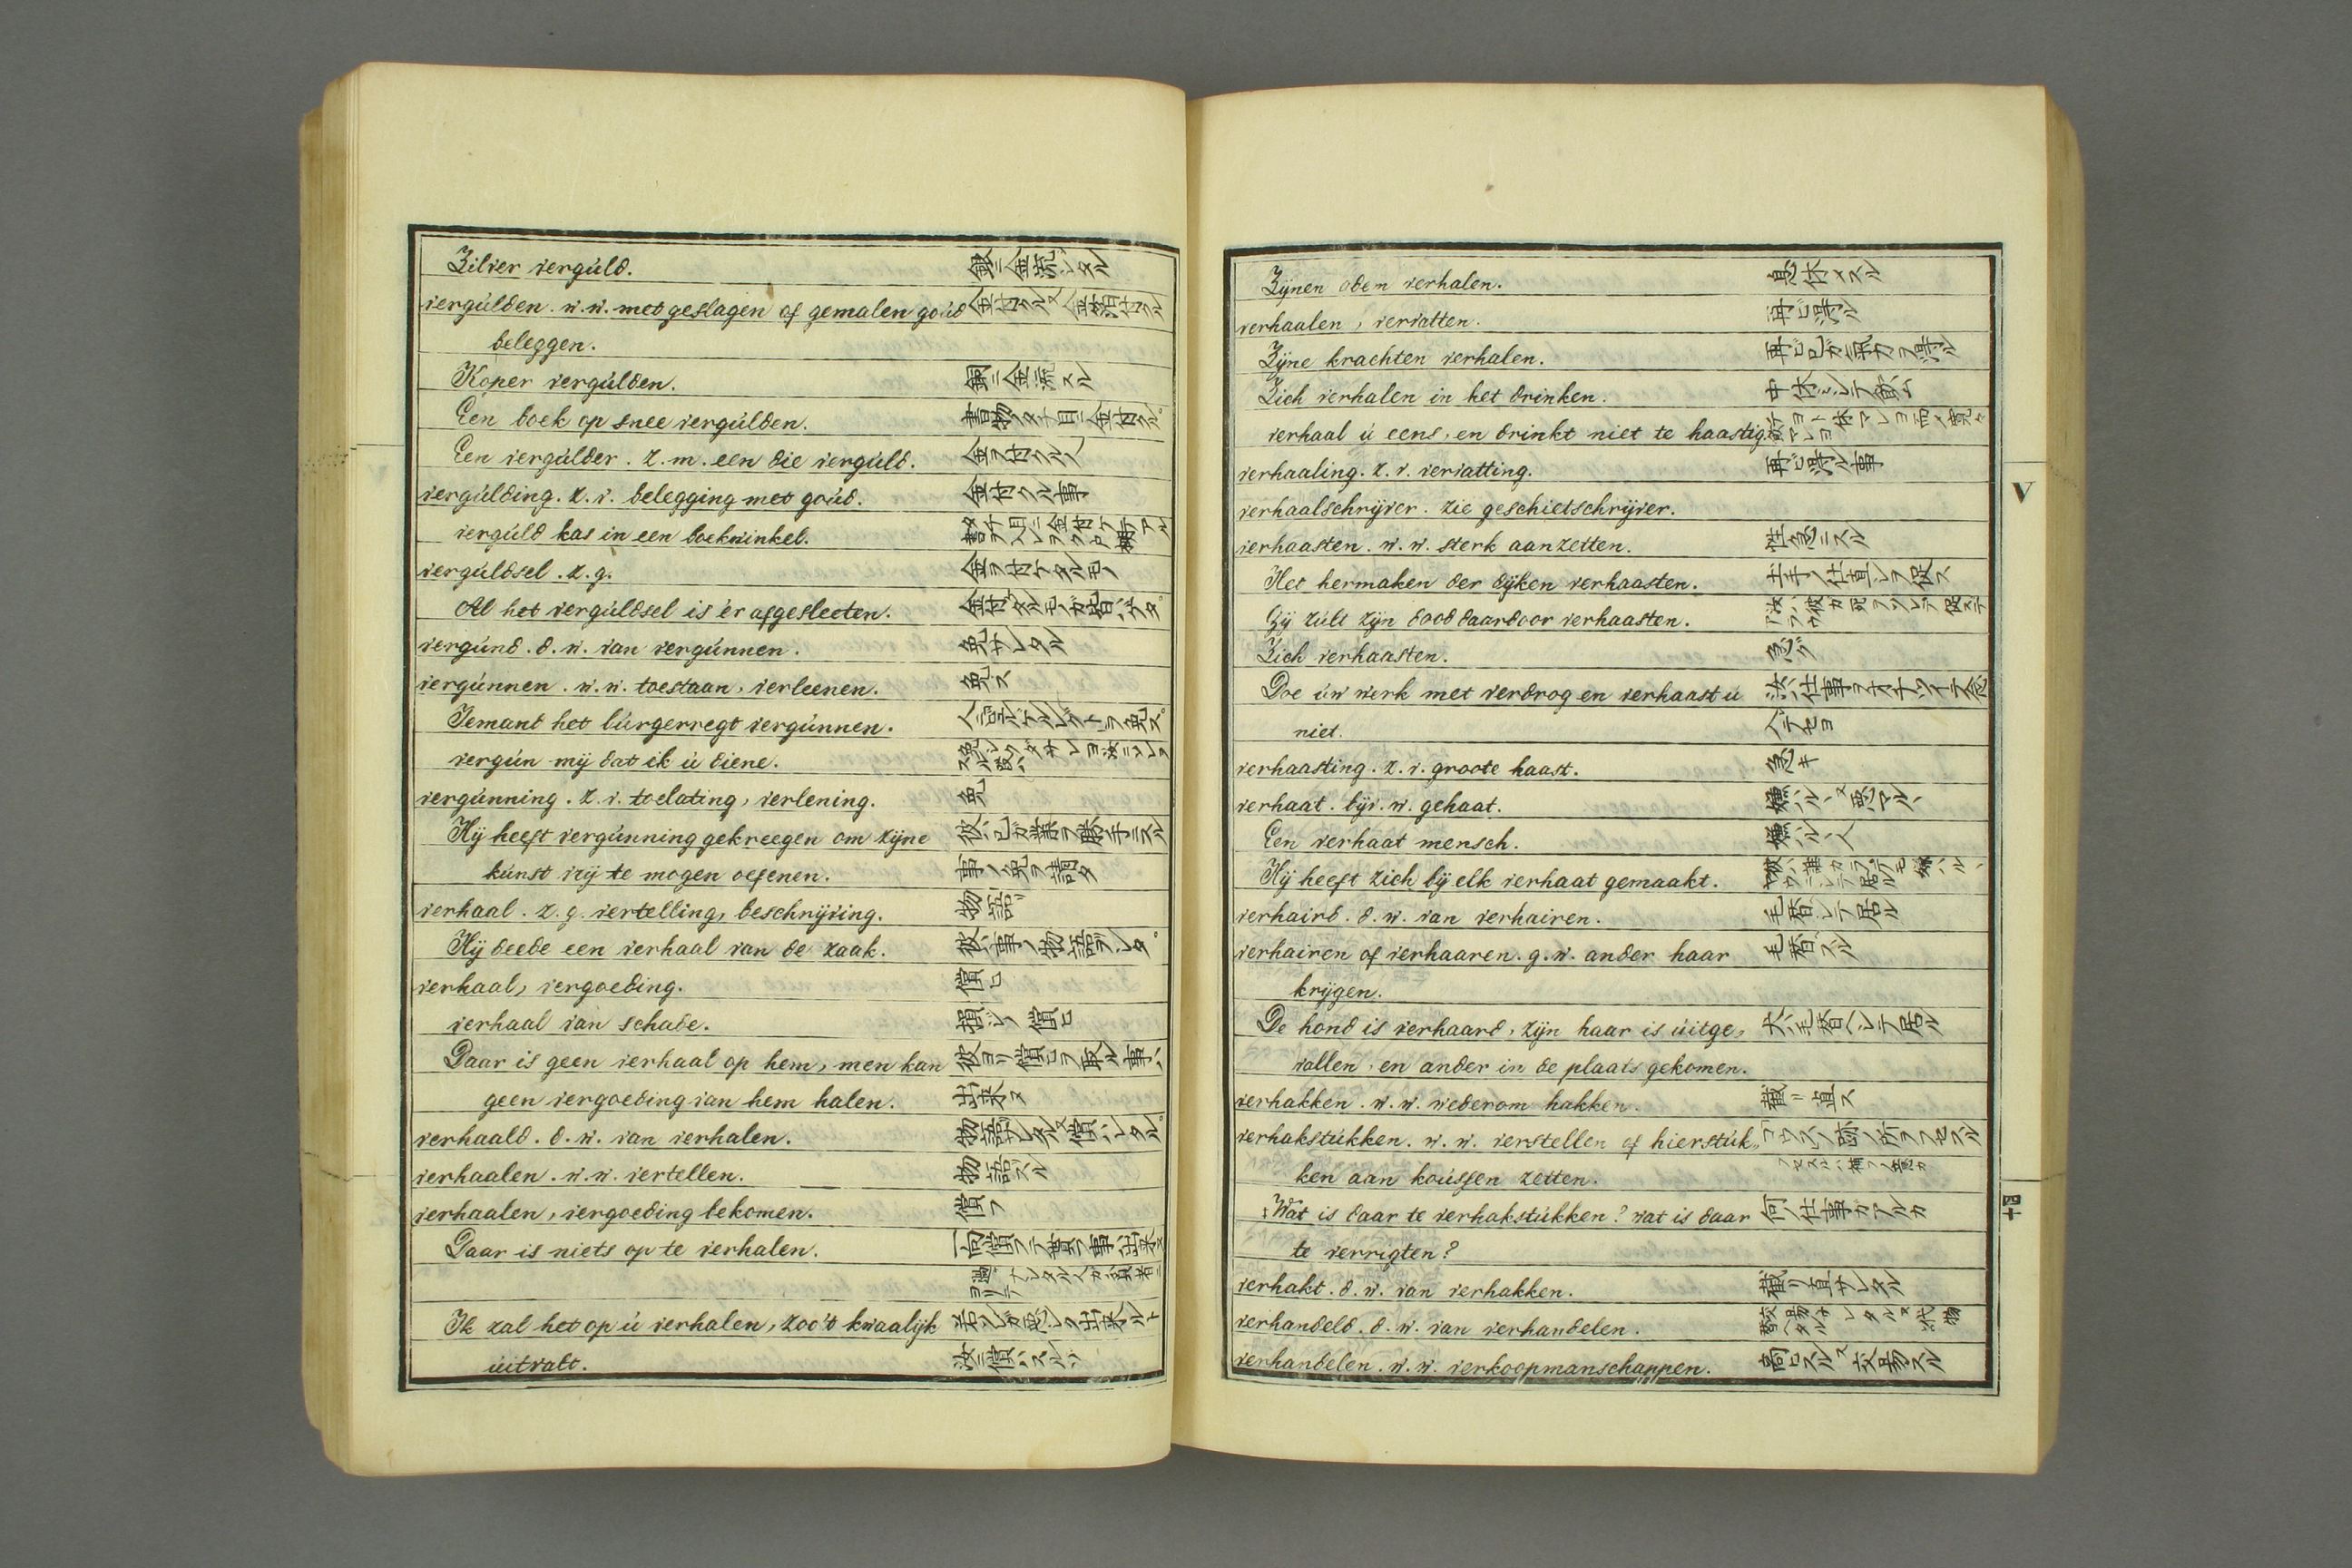 Zilver vergúld. 銀ニ金流シタル
vergúlden. w.w. met geslagen of gemalen goúd 金付クル又金箔付クル
beleggen.
Koper vergúlden. 銅ニ金流スル
Een boek op snee vergúlden. 書物ノタチ目ニ金付クル。
Een vergúlder. z.m. een die vergúld. 金ヲ付クル人
vergúlding. z.v. belegging met goúd. 金付クル事
vergúld kas in een boekwinkel. タチ目ニ金付ケテアル書ヲ入レヲク戸棚
vergúldsel. z.g. 金ヲ付ケタルモノ
Al het vergúldsel is 'er afgesleeten. 金付ケタルモノガ皆ハゲタ。
vergúnd. d.w. van vergúnnen. 免サレタル
vergúnnen. w.w. toestaan, verleenen. 免ス
Iemant het búrgerregt vergúnnen.
vergún mij dat ik ú diene.
vergúnning. z.v. toelating, verlening. 免
Hij heeft vergúnning gekreegen om zijne 彼ハ己ガ業ヲ勝手ニスル
kúnst vrij te mogen oefenen. 事ノ免ヲ請タ
verhaal. z.g. vertelling, beschrijving. 物語リ
Hij deede een verhaal van de zaak. 彼ハ事ノ物語ヲシタ。
verhaal, vergoeding. 償ヒ
verhaal van schade. 損シノ償ヒ
Daar is geen verhaal op hem, men kan 彼ヨリ償ヒヲ取ル事ハ
geen vergoeding van hem halen. 出来ヌ
verhaald. d.w. van verhalen. 物語サレタル又償ハレタル。
verhaalen. w.w. vertellen. 物語スル
verhaalen, vergoeding bekomen. 償フ
Daar is niets op te verhalen. 一向償フテ貰フ事ハ出来ヌ
Ik zal het op ú verhalen, zoo't kwaalijk 若シソレガ悪シク出来ルト
úitvalt. 汝ニ償ハスルゾ
Zijnen adem verhalen. 息休メスル
verhaalen, vervatten. 再ヒ得ル
Zijne krachten verhalen. 再ビ己ガ氣力ヲ得ル
Zich verhalen in het drinken. 中休ミシテ飲ム
verhaal ú eens, en drinkt niet te haastig.
verhaaling. z.v. vervatting. 再ヒ得ル事
verhaalschrijver. zie geschietschrijver.
verhaasten. w.w. sterk aanzetten. 性急ニスル
Het hermaken der dijken verhaasten. 土手ノ仕直シヲ促ス
Gij zúlt zijn dood daardoor verhaasten.
Zich verhaasten. 急グ
Doe úw werk met verdrog en verhaast ú
niet.
verhaasting. z.v. groote haast. 急キ
verhaat. bijv.w. gehaat. 嫌ハルヽ又悪マルヽ
Een verhaat mensch. 嫌ハルヽ人
Hij heeft zich bij elk verhaat gemaakt.
verhaird. d.w. van verhairen. 毛替シテ居ル
verhairen of verhaaren. g.w. ander haar 毛替スル
krijgen.
De hond is verhaard, zijn haar is úitge„ 犬ハ毛替ヘシテ居ル
vallen, en ander in de plaats gekomen.
verhakken. w.w. wederom hakken. 截リ直ス
verhakstúkken. w.w. verstellen of hierstúk„
ken aan koússen zetten.
Wat is daar te verhakstúkken? wat is daar 何ノ仕事カアルカ
te verrigten?
verhakt. d.w. van verhakken. 截リ直サレタル
verhandeld. d.w. van verhandelen.
verhandelen. w.w. verkoopmanschappen. 商ヒスル又交易スル
V
十四